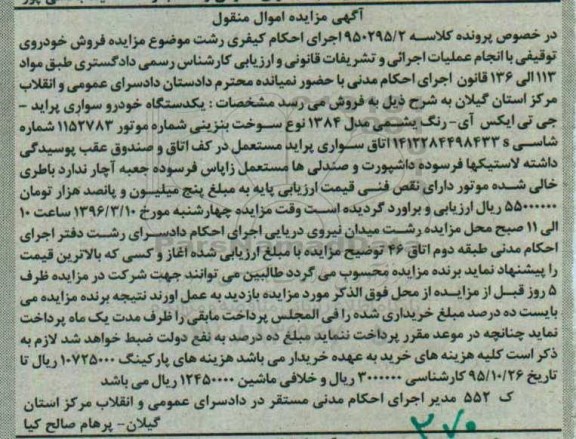 آگهی مزایده اموال منقول
در خصوص پرونده کلاسه ۹۵۰۲۹۵/۲ اجرای احکام کیفری رشت موضوع مزایده فروش خودروی
توقیفی با انجام عملیات اجرائی و تشریفات قانونی و ارزیابی کارشناس رسمی دادگستری طبق مواد
۱۱۳ الی ۱۳۶ قانون اجرای احکام مدنی با حضور نماینده محترم دادستان دادسرای عمومی و انقلاب
مرکز استان گیلان به شرح ذیل به فروش می رسد مشخصات : یکدستگاه خودرو سواری پراید –
جی تی ایکس آی- رنگ یشمی مدل ۱۳۸۴ نوع سوخت بنزینی شماره موتور ۱۱۵۲۷۸۳ شماره
شاسی s ۱۴۱۲۲۸۴۴۹۸۴۳۳ اتاق سواری پراید مستعمل در کف اتاق و صندوق عقب پوسیدگی
داشته لاستیکها فرسوده داشپورت و صندلی ها مستعمل زاپاس فرسوده جعبه آچار ندارد باطری
خالی شده موتور دارای نقص فنی قیمت ارزیابی پایه به مبلغ پنج میلیون و پانصد هزار تومان
۵۵۰۰۰۰۰۰ ریال ارزیابی و براورد گردیده است وقت مزایده چهارشنبه مورخ ۱۳۹۶/۳/۱۰ ساعت ۱۰
الی ۱۱ صبح محل مزایده رشت میدان نیروی دریایی اجرای احکام دادسرای رشت دفتر اجرای
احکام مدنی طبقه دوم اتاق ۴۶ توضیح مزایده با مبلغ ارزیابی شده اغاز و کسی که بالاترین قیمت
را پیشنهاد نماید برنده مزایده محسوب می گردد طالبین می توانند جهت شرکت در مزایده ظرف
۵ روز قبل از مزایده از محل فوق الذکر مورد مزایده بازدید به عمل اورند نتیجه برنده مزایده می
بایست ده درصد مبلغ خریداری شده را فی المجلس پرداخت مابقی را ظرف مدت یک ماه پرداخت
نماید چنانچه در موعد مقرر پرداخت ننماید مبلغ ده درصد به نفع دولت ضبط خواهد شد لازم به
ذکر است کلیه هزینه های خرید به عهده خریدار می باشد هزینه های پارکینگ ۱۰۷۲۵۰۰۰ ریال تا
تاریخ ۹۵/۱۰/۲۶ کارشناسی ۳۰۰۰۰۰۰ ریال و خلافی ماشین ۱۲۴۵۰۰۰۰ ریال می باشد
ک ۵۵۲ مدیر اجرای احکام مدنی مستقر در دادسرای عمومی و انقلاب مرکز استان
گیلان- پرهام صالح کیا
۳۷۰